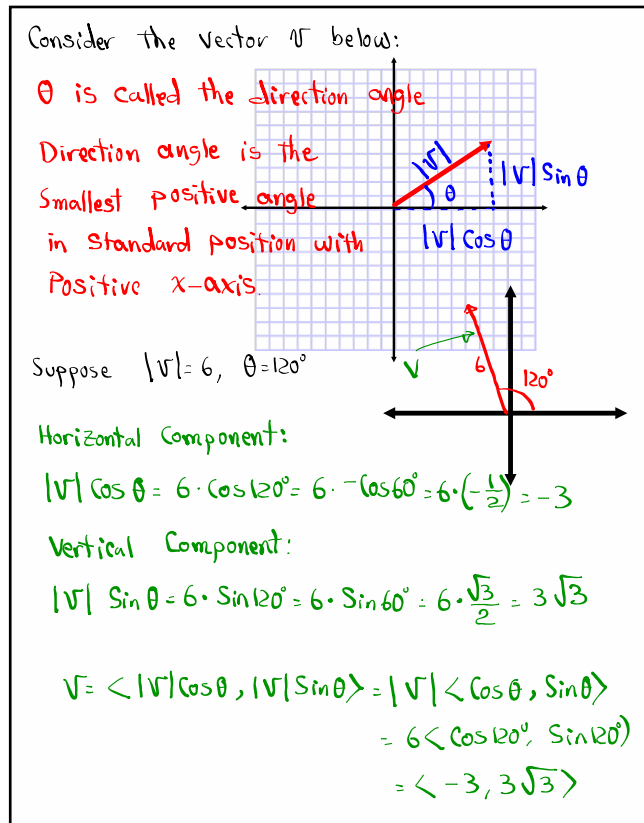 Consider the vector v below:
θ is called the direction angle
Direction angle is the
Smallest positive angle
in standard position with
Positive x-axis.
|v|
θ
|v| Sin θ
|v| Cos θ
Suppose |v| = 6, θ = 120°
v
6
120°
Horizontal Component:
|v| Cos θ = 6 · Cos 120° = 6 · -Cos 60° = 6 · (-1/2) = -3
Vertical Component:
|v| Sin θ = 6 · Sin 120° = 6 · Sin 60° = 6 · √3/2 = 3√3
v = < |v| Cos θ, |v| Sin θ > = |v| < Cos θ, Sin θ >
= 6 < Cos 120°, Sin 120° )
= < -3, 3√3 >